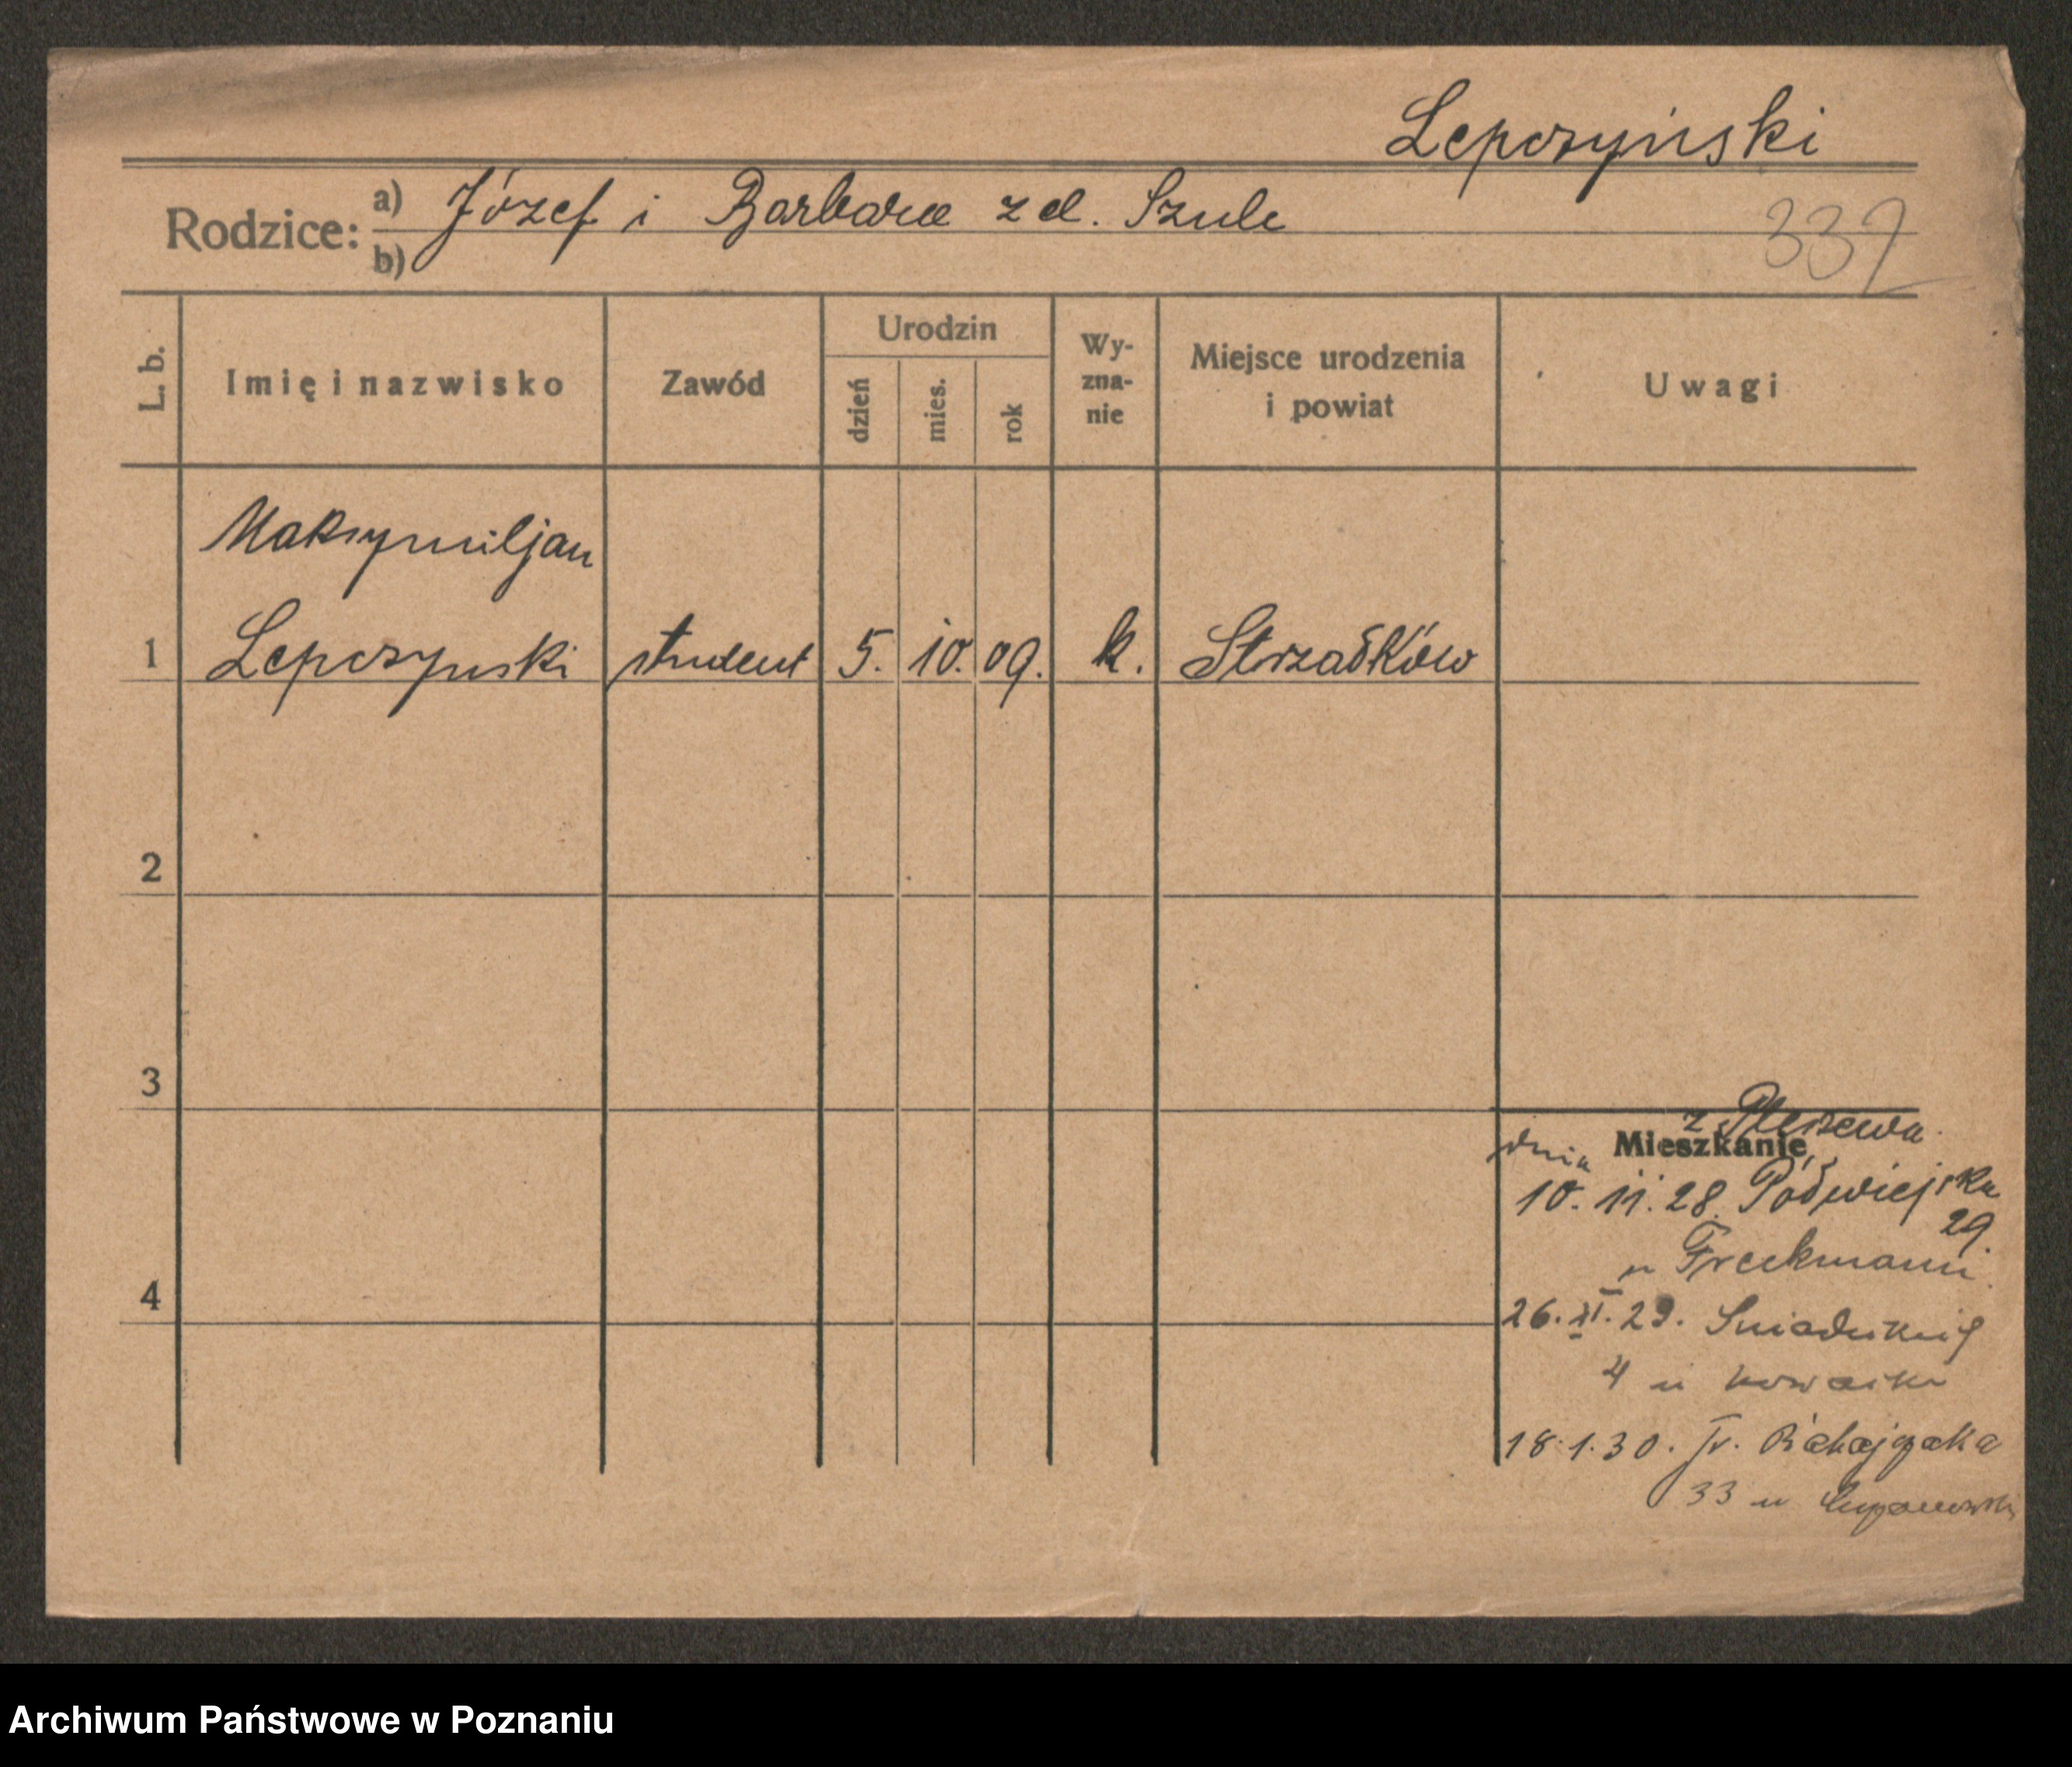 Lepczyński
Rodzice: a) Józef i Barbara z d. Szulc
b)
337
L. b.
Imię i nazwisko
Zawód
Urodzin
dzień
mies.
rok
Wy-
zna-
nie
Miejsce urodzenia
i powiat
Uwagi
Maksymiljan
1 Lepczynski student 5. 10. 09. k. Strzałków
2
3
z Pleszewa.
dnia Mieszkanie
10. 11. 28. Półwiejska
29.
u Freckmann
4
26. XI. 29.
4 u
18.1.30. Fr. Ratajczaka
33 u
Archiwum Państwowe w Poznaniu